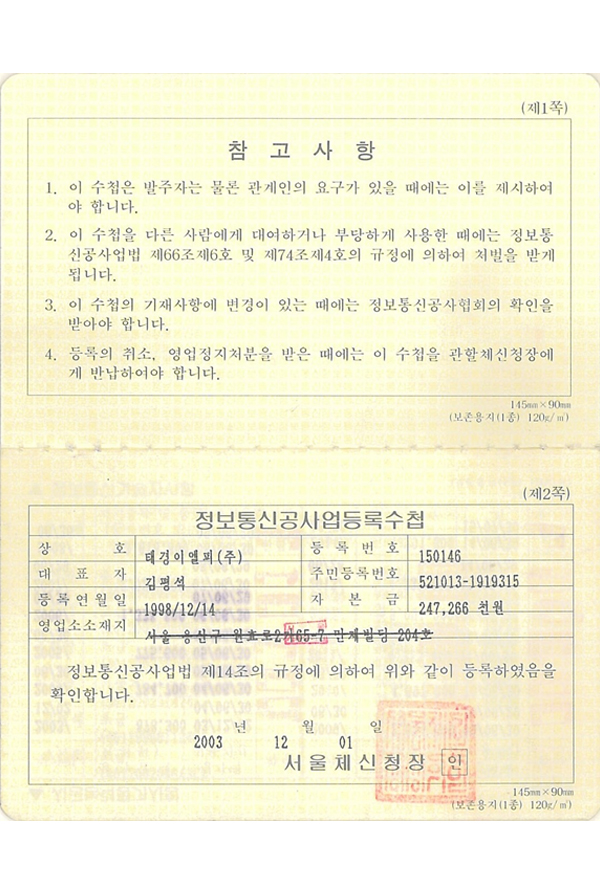 (제1쪽)
참 고 사 항
1. 이 수첩은 발주자는 물론 관계인의 요구가 있을 때에는 이를 제시하여
야 합니다.
2. 이 수첩을 다른 사람에게 대여하거나 부당하게 사용한 때에는 정보통
신공사업법 제66조제6호 및 제74조제4호의 규정에 의하여 처벌을 받게
됩니다.
3. 이 수첩의 기재사항에 변경이 있는 때에는 정보통신공사협회의 확인을
받아야 합니다.
4. 등록의 취소, 영업정지처분을 받은 때에는 이 수첩을 관할체신청장에
게 반납하여야 합니다.
145㎜×90㎜
(보존용지(1종) 120g/㎡)
(제2쪽)
정보통신공사업등록수첩
상 호 태경이엘피(주) 등 록 번 호 150146
대 표 자 김평석 주민등록번호 521013-1919315
등록연월일 1998/12/14 자 본 금 247,266 천원
영업소소재지 서울 용산구 원효로2가65-7 만재빌딩 204호
정보통신공사업법 제14조의 규정에 의하여 위와 같이 등록하였음을
확인합니다.
년 월 일
2003 12 01
서울체신청장 인
145㎜×90㎜
(보존용지(1종) 120g/㎡)